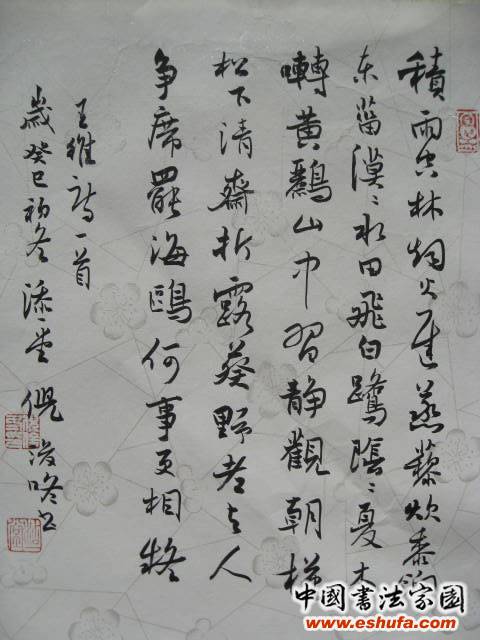 積雨空林烟火遲蒸藜炊黍餉
东菑漠〻水田飛白鷺陰〻夏木
囀黃鸝山中習静觀朝槿
松下清齋折露葵野老与人
争席罷海鷗何事更相疑
王維诗一首
歲癸巳初冬 倪 书
中国书法家园
www.eshufa.com